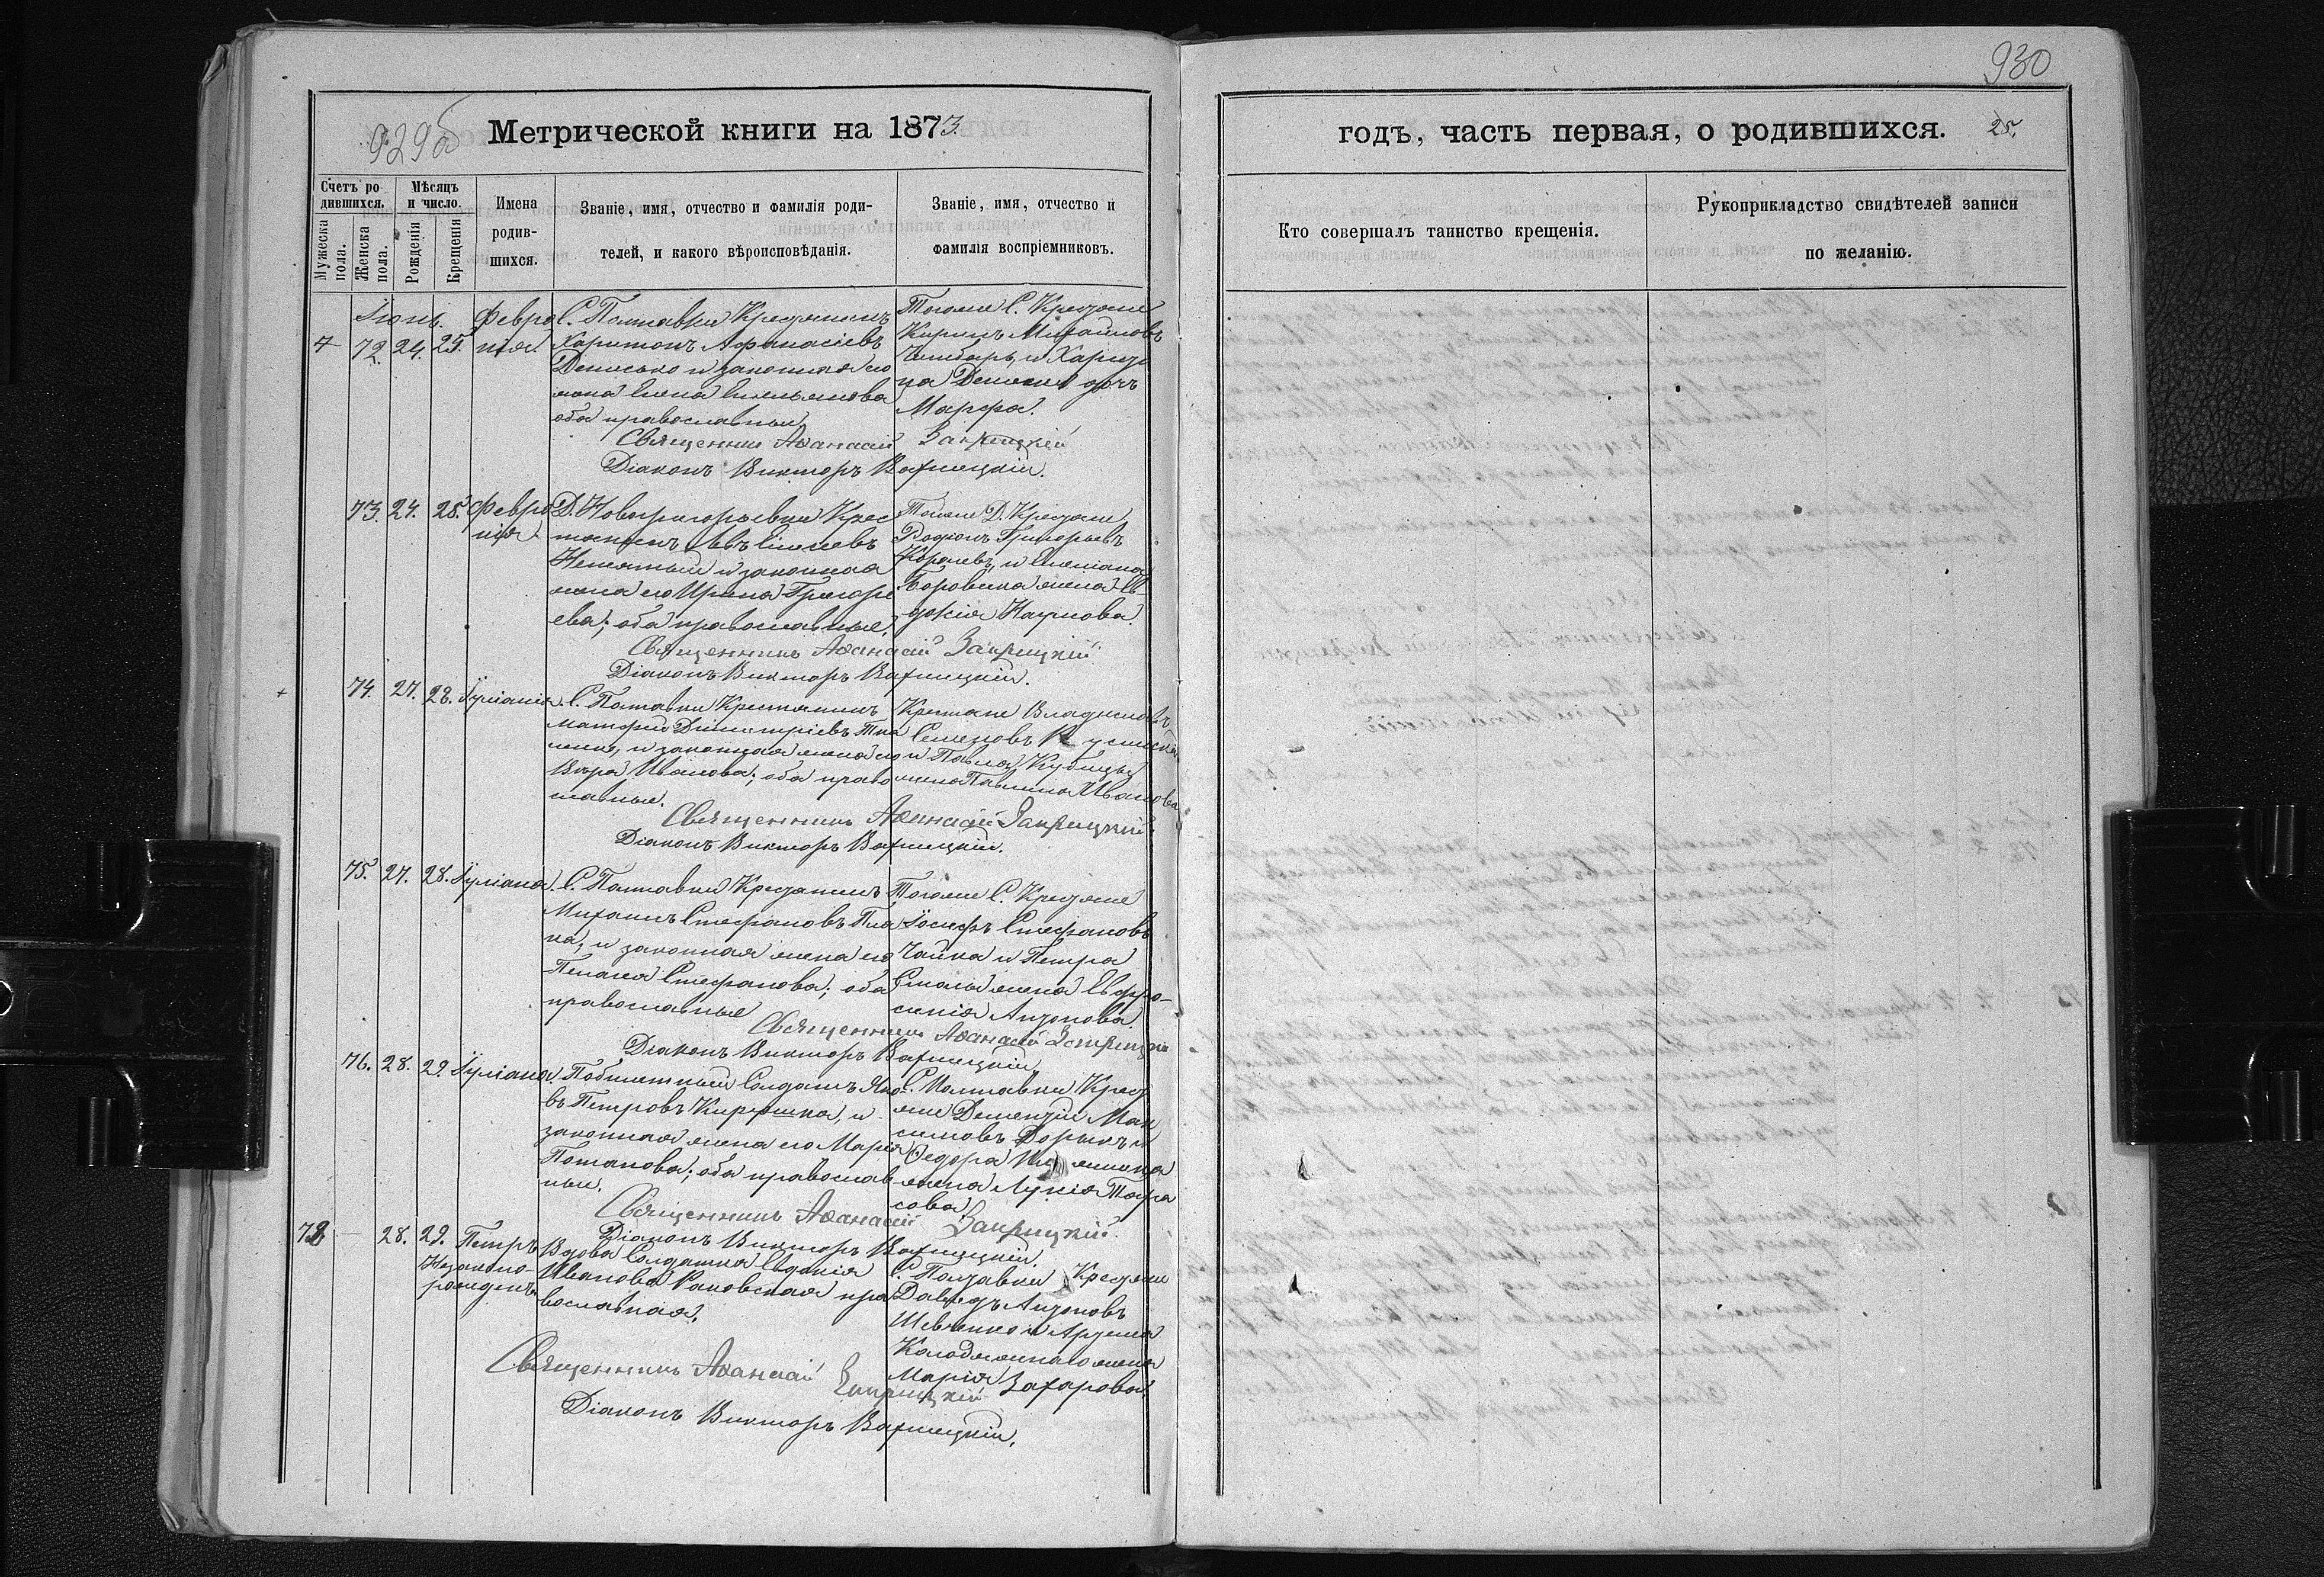 930
929об
Метрической книги на 1873.
годъ, часть первая, о родившихся. 25.
Счетъ родившихся.
Мѣсяцъ и число.
Имена родившихся.
Званіе, имя, отчество и фамилія родителей, и какого вѣроисповѣданія.
Званіе, имя, отчество и фамилія воспріемниковъ.
Мужеска пола.
Женска пола.
Рожденія
Крещенія
Кто совершалъ таинство крещенія.
Рукоприкладство свидѣтелей записи по желанію.
Іюнь.
72. 24. 25. Февронія.
С. Полтавки Крестянинъ
Харитонъ Афанасіевъ
Денисько и законная его
жена Елена Емельянова
оба православные
Тогоже С. Крестяне
Кирилъ Михайловъ
Чимбарь, и Харито
на Дениска дочъ
Марфа.
Священникъ Аѳанасій Закрицкій
Діаконъ Викторъ Варницкій.
73. 24. 25. Февронія.
Д. Новогригорьевки Крес
тянинъ
и законная
жена его Ирина Григорі
ева; оба православные.
Тойже Д. Крестяне
Родіонъ Григорьевъ
Королевъ, и Емеліана
Боровика жена Ев
докія Наумова.
Священникъ Аѳанасій Закрицкій
Діаконъ Викторъ Варницкій.
74. 27. 28. Іуліанія.
С. Полтавки Крестянинъ
Матфей Димитріевъ Тка
ченко, и законная жена его
Вѣра Иванова; оба право
славные.
Крестяне Владиславъ
Семеновъ
и Павла Кубицы
жена Павлина Иванова
Священникъ Аѳанасій Закрицкій
Діаконъ Викторъ Варницкій.
75. 27. 28. Іуліана.
С. Полтавки Крестянинъ
Михаилъ Стефановъ
и законная жена его
Пелагея Стефанова; оба
православные
Тогоже С. Крестяне
Іосифъ Стефановъ
Чайка и Петра
жена Евфро-
синія Антонова.
Священникъ Аѳанасій Закрицкій
Діаконъ Викторъ Варницкій.
76. 28. 29. Іуліана.
Побилетный Солдатъ Яко
въ Петровъ Кирюшка, и
законная жена его Марія
Потапова; оба православ
ные.
С. Полтавки Крест
яне Дементій Мак
симовъ и
Федора
жена Лукія Тара
сова.
Священникъ Аѳанасій Закрицкій
Діаконъ Викторъ Варницкій.
28. 29. Петръ
Незаконно-
рожденъ
Вдова Солдатка Евдокія
Иванова Раковская пра
вославная.
С. Полтавки Крестяне
Давидъ Антоновъ
Шевченко и
жена
Марія Захарова.
Священникъ Аѳанасій Закрицкій
Діаконъ Викторъ Варницкій.